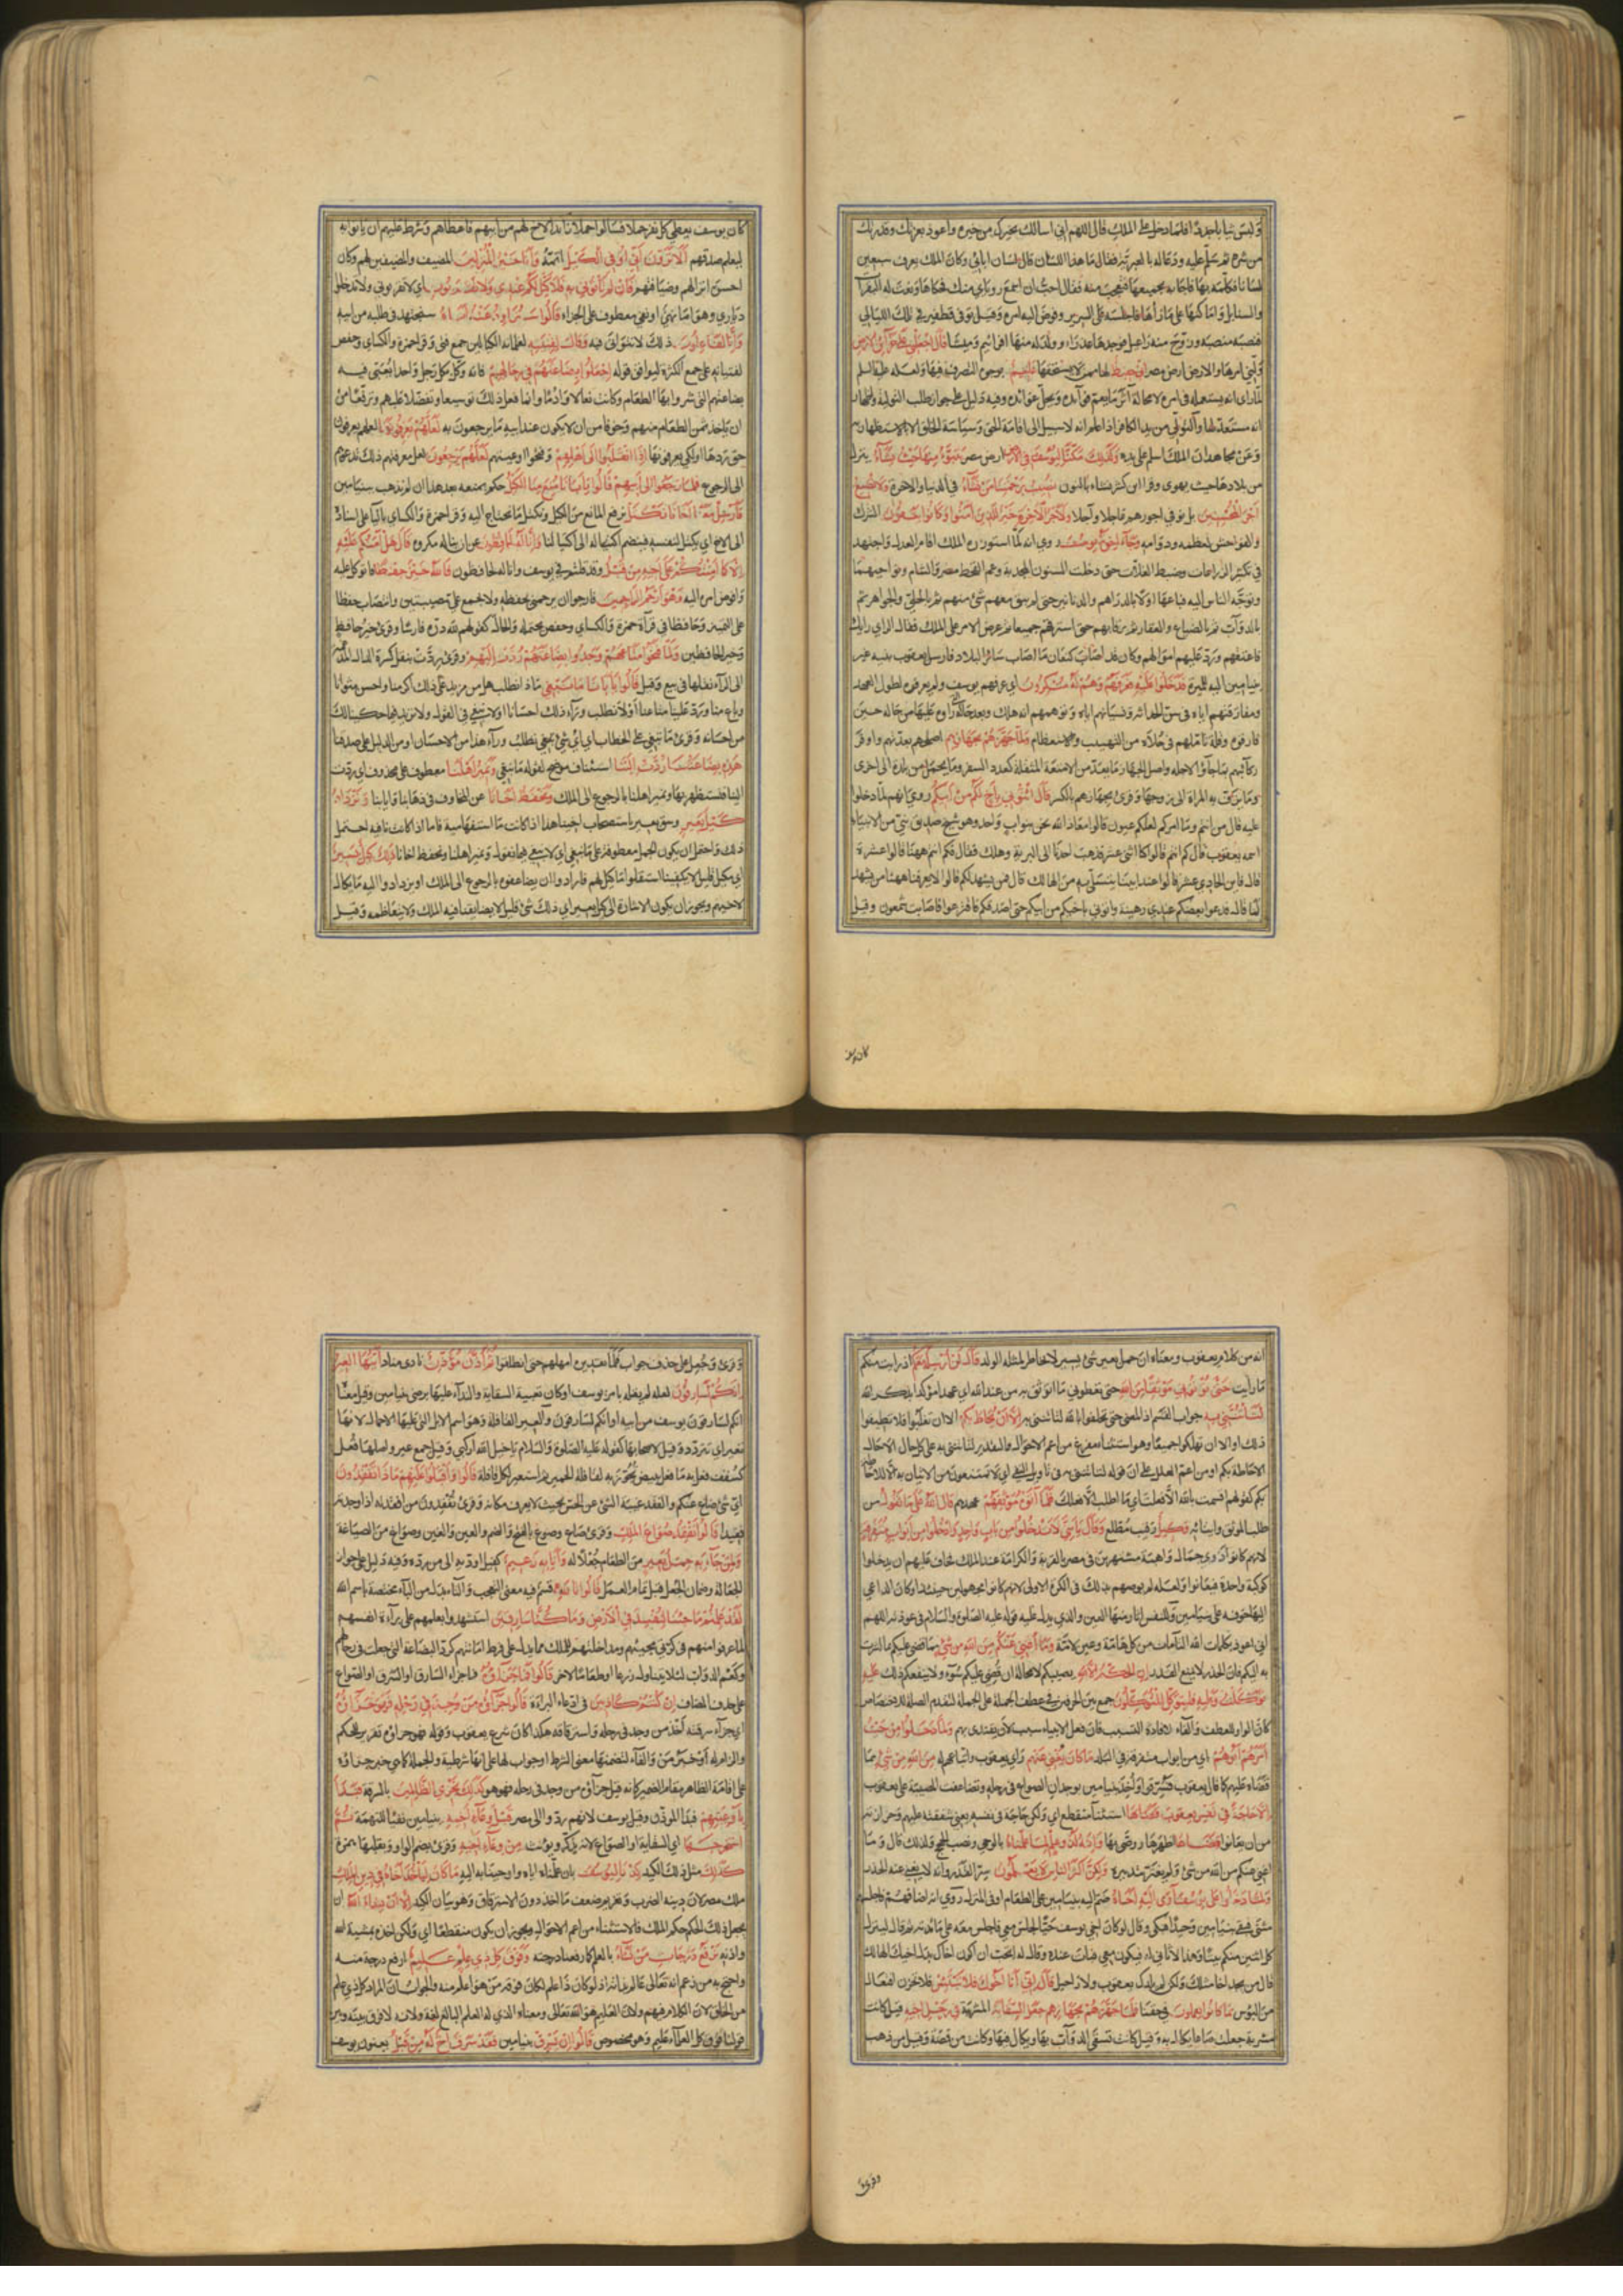 ولبس ثيابا جددا فلما دخل على الملك قال اللهم اني اسالك بخيرك من خيره واعوذ بعزتك وقدرتك
من شره ثم سلم عليه ودعا له بالعبرية فقال ما هذا اللسان قال لسان ابائي وكان الملك يعرف سبعين
لسانا فكلمه بها فاجابه بجميعها فتعجب منه فقال احب ان اسمع روياي منك فحكاها ونعت له البقرات
والسنابل واماكنها على ما رأها فاجلسه على السرير وفوض اليه امره وقيل توفي قطفير في تلك الليالي
فنصبه منصبه وزوج منه راعيل فوجدها عذراء وولد له منها افرائيم وميشا قال اجعلني على خزائن الارض
ولني امرها والارض ارض مصر اني حفيظ لها ممن لا يستحقها عليم بوجوه التصرف فيها ولعله عليه السلم
لما راى انه يستعمله في امره لا محالة آثر ما يعم فوآئده ويجل عوائده وفيه دليل على جواز طلب التولية واظهار
انه مستعد لها والتولي من يد الكافر اذا علم انه لا سبيل الى اقامة الحق وسياسة الخلق الا بالاستظهار به
وعن مجاهد ان الملك اسلم على يده وكذلك مكنا ليوسف في الارض ارض مصر يتبوأ منها حيث يشآء ينزل
من بلادها حيث يهوى وقرا ابن كثير نشاء بالنون نصيب برحمتنا من نشآء في الدنيا والاخرة ولا نضيع
اجر المحسنين بل نوفي اجورهم عاجلا وآجلا ولاجر الآخرة خير للذين امنوا وكانوا يتقون الشرك
والفواحش لعظمه ودوامه وجآء اخوة يوسف روي انه لما استوزره الملك اقام العدل واجتهد
في تكثير الزراعات وضبط الغلات حتى دخلت السنون المجدبة وعم القحط مصر والشام ونواحيهما
وتوجه الناس اليه فباعها اولا بالدراهم والدنانير حتى لم يبق معهم شئ منهم ثم بالحلي والجواهر ثم
بالدوآب ثم بالضياع والعقار ثم برقابهم حتى استرقهم جميعا ثم عرض الامر على الملك فقال الراي رايك
فاعتقهم ورد عليهم اموالهم وكان قد اصاب كنعان ما اصاب سائر البلاد فارسل يعقوب بنيه غير
بنيامين اليه للميرة فدخلوا عليه فعرفهم وهم له منكرون اي عرفهم يوسف ولم يعرفوه لطول العهد
ومفارقتهم اياه في سن الحداثة ونسيانهم اياه وتوهمهم انه هلك وبعد حاله التي راوه عليها من حاله حين
فارقوه وقلة تاملهم في حلاه من التهيب والاستعظام ولما جهزهم بجهازهم اصلحهم بعدتهم واوقر
ركآئبهم بما جآؤا لاجله واصل الجهاز ما يعد من الامتعة للنقلة كعدد السفر وما يحمل من بلدة الى اخرى
وما تزف به المراة الى زوجها وقرئ بجهازهم بالكسر قال ائتوني باخ لكم من ابيكم روي انهم لما دخلوا
عليه قال من انتم وما امركم لعلكم عيون قالوا معاذ الله نحن بنوا اب واحد وهو شيخ صديق نبي من الانبياء
اسمه يعقوب قال كم انتم قالوا كنا اثنى عشر فذهب احدنا الى البرية وهلك فقال فكم انتم ههنا قالوا عشرة
قال فاين الحادي عشر قالوا عند ابينا يتسلى به من الهالك قال فمن يشهد لكم قالوا لا يعرفنا ههنا من يشهد
لنا قال فدعوا بعضكم عندي رهينة واتوني باخيكم من ابيكم حتى اصدقكم فاقترعوا فاصابت شمعون وقيل
كان يوسف يعطي كل نفر حملا فسالوا حملا زائدا لاخ لهم من ابيهم فاعطاهم وشرط عليهم ان ياتوا به
ليعلم صدقهم ألا ترون أني اوفي الكيل اتمه وأنا خير المنزلين للضيف والمضيفين لهم وكان
احسن انزالهم وضيافتهم فان لم تأتوني به فلا كيل لكم عندي ولا تقربون اي لا تقربوني ولا تدخلوا
دياري وهو اما نهي او نفي معطوف على الجزاء قالوا سنراود عنه اباه سنجتهد في طلبه من ابيه
وإنا لفاعلون ذلك لا نتوانى فيه وقال لفتيته لغلمانه الكيالين جمع فتى وقرا حمزة والكساي وحفص
لفتيانه على جمع الكثرة ليوافق قوله اجعلوا بضاعتهم في رحالهم فانه وكل بكل رجل واحدا يعبي فيه
بضاعتهم التي شروا بها الطعام وكانت نعالا وادما وانما فعل ذلك توسيعا وتفضلا عليهم وترفعا من
ان ياخذ ثمن الطعام منهم وخوفا من ان لا يكون عند ابيه ما يرجعون به لعلهم يعرفونها لعلهم يعرفون
حق ردها او لكي يعرفوها إذا انقلبوا الى اهلهم وفتحوا اوعيتهم لعلهم يرجعون لعل معرفتهم ذلك تدعوهم
الى الرجوع فلما رجعوا الى ابيهم قالوا يا ابانا منع منا الكيل حكم بمنعه بعد هذا ان لم نذهب ببنيامين
فأرسل معنا اخانا نكتل نرفع المانع من الكيل ونكتل ما نحتاج اليه وقرا حمزة والكساي باليآء على اسناده
الى الاخ اي يكتل لنفسه فينضم اكتياله الى اكتيالنا وإنا له لحافظون عن ان يناله مكروه قال هل آمنكم عليه
إلا كما امنتكم على اخيه من قبل وقد قلتم في يوسف وانا له لحافظون فالله خير حفظا فاتوكل عليه
وافوض امره اليه وهو ارحم الراحمين فارجو ان يرحمني بحفظه ولا يجمع على مصيبتين وانتصاب حفظا
على التمييز وحافظا في قرآة حمزة والكساي وحفص يحتمله والحال كقولهم لله دره فارسا وقرئ خير حافظ
وخير الحافظين ولما فتحوا متاعهم وجدوا بضاعتهم ردت إليهم وقرئ ردت بنقل كسرة الدال المدغمة
الى الرآء نقلها في بيع وقيل قالوا يا ابانا ما نبغي ما ذا نطلب هل من مزيد على ذلك اكرمنا واحسن مثوانا
وباع منا ورد علينا متاعنا او لا نطلب ورآء ذلك احسانا او لا نبغي في القول ولا نزيد فيما حكينا لك
من احسانه وقرئ ما تبغي على الخطاب اي اي شئ تبغي تطلب ورآء هذا من الاحسان او من الدليل على صدقنا
هذه بضاعتنا ردت إلينا استئناف موضح لقوله ما نبغي ونمير اهلنا معطوف على محذوف اي ردت
الينا فنستظهر بها ونمير اهلنا بالرجوع الى الملك ونحفظ اخانا عن المخاوف في ذهابنا وايابنا ونزداد
كيل بعير وسق بعير باستصحاب اخينا هذا اذا كانت ما استفهامية فاما اذا كانت نافية احتمل
ذلك واحتمل ان يكون الجمل معطوفة على ما نبغي اي لا نبغي فيما نقول ونمير اهلنا ونحفظ اخانا ذلك كيل يسير
اي مكيل قليل لا يكفينا استقلوا ما كيل لهم فارادوا ان يضاعفوه بالرجوع الى الملك او يزدادوا اليه ما يكال
لاخيهم ويجوز ان يكون الاشارة الى كيل بعير اي ذلك شئ قليل لا يضايقنا فيه الملك ولا يتعاظمه وقيل
كان يوسف
انه من كلام يعقوب ومعناه ان حمل بعير شئ يسير لا يخاطر لمثله الولد قال لن أرسله معكم اذ رايت منكم
ما رأيت حتى تؤتوني موثقا من الله حتى تعطوني ما اتوثق به من عند الله اي عهدا مؤكدا بذكر الله
لتأتنني به جواب القسم اذ المعنى حتى تحلفوا بالله لتاتنني به إلا أن يحاط بكم الا ان تغلبوا فلا تطيقوا
ذلك او الا ان تهلكوا جميعا وهو استثناء مفرغ من اعم الاحوال والتقدير لتاتنني به على كل حال الا حال
الاحاطة بكم او من اعم العلل على ان قوله لتاتنني به في تاويل النفي اي لا تمتنعون من الاتيان به الا للاحاطة
بكم كقولهم اقسمت بالله الا فعلت اي ما اطلب الا فعلك فلما آتوه موثقهم عهدهم قال الله على ما نقول من
طلب الموثق واتيانه وكيل رقيب مطلع وقال يا بني لا تدخلوا من باب واحد وادخلوا من أبواب متفرقة
لانهم كانوا ذوي جمال وابهة مشتهرين في مصر بالقربة والكرامة عند الملك فخاف عليهم ان يدخلوا
كوكبة واحدة فيعانوا ولعله لم يوصهم بذلك في الكرة الاولى لانهم كانوا مجهولين حينئذ او كان الداعي
اليها خوفه على بنيامين وللنفس اثار منها العين والذي يدل عليه قوله عليه الصلوة والسلام في عوذته اللهم
اني اعوذ بكلمات الله التامات من كل هامة وعين لامة وما أغني عنكم من الله من شئ مما قضى عليكم بما اشرت
به اليكم فان الحذر لا يمنع القدر إن الحكم إلا لله يصيبكم لا محالة ان قضي عليكم سوء ولا ينفعكم ذلك عليه
توكلت وعليه فليتوكل المتوكلون جمع بين الحرفين في عطف الجملة على الجملة لتقدم الصلة للاختصاص
كان الواو للعطف والفاء لافادة التسبب فان فعل الانبياء سبب لان يقتدى بهم ولما دخلوا من حيث
أمرهم أبوهم اي من ابواب متفرقة في البلد ما كان يغني عنهم راي يعقوب واتباعهم له من الله من شئ مما
قضاه عليهم كما قال يعقوب فسرقوا واخذ بنيامين بوجدان الصواع في رحله وتضاعفت المصيبة على يعقوب
إلا حاجة في نفس يعقوب قضاها استثنآ منقطع اي ولكن حاجة في نفسه يعني شفقته عليهم وحرازته
من ان يعانوا قضاها اظهرها ووصى بها وإنه لذو علم لما علمناه بالوحي ونصب الحجج ولذلك قال وما
اغني عنكم من الله من شئ ولم يغتر بتدبيره ولكن أكثر الناس لا يعلمون سر القدر وانه لا يغني عنه الحذر
ولما دخلوا على يوسف آوى اليه أخاه ضم اليه بنيامين على الطعام او في المنزل روي انه اضافهم فاجلسهم
مثنى فبقي بنيامين وحيدا فبكى وقال لو كان اخي يوسف حيا لجلس معي فاجلس معه على مائدته ثم قال لينزل
كل اثنين منكم بيتا وهذا لا ثاني له فيكون معي فبات عنده وقال له اتحب ان اكون اخاك بدل اخيك الهالك
قال من يجد اخا مثلك ولكن لم يلدك يعقوب ولا راحيل قال إني أنا أخوك فلا تبتئس فلا تحزن افتعال
من البؤس بما كانوا يعملون في حقنا فلما جهزهم بجهازهم جعل السقاية المشربة في رحل اخيه قيل كانت
مشربة جعلت صاعا يكال به وقيل كانت تسقى الدوآب بها ويكال فيها وكانت من فضة وقيل من ذهب
وقرئ
وقرئ وجعل على حذف جواب فلما تقديره امهلهم حتى انطلقوا ثم أذن مؤذن نادى مناد أيتها العير
إنكم لسارقون لعله لم يقله بامر يوسف او كان تعبية السقاية والندآء عليها برضى بنيامين وقيل معناه
انكم لسارقون يوسف من ابيه او ائنكم لسارقون والعير القافلة وهو اسم الابل التي عليها الاحمال لانها
تعير اي تتردد وقيل لاصحابها كقوله عليه الصلوة والسلام يا خيل الله اركبي وقيل جمع عير واصلها فعل
كسقف فعل به ما فعل ببيض تجوز به لقافلة الحمير ثم استعير لكل قافلة قالوا وأقبلوا عليهم ماذا تفقدون
اي شئ ضاع عنكم والفقد غيبة الشئ عن الحس بحيث لا يعرف مكانه وقرئ تفقدون من افقدته اذا وجدته
فقيدا قالوا نفقد صواع الملك وقرئ صاع وصوع بالفتح والضم والعين والغين وصواغ من الصياغة
ولمن جآء به حمل بعير من الطعام جعلا له وأنا به زعيم كفيل اوديه الى من رده وفيه دليل على جواز
الجعالة وضمان الجعل قبل تمام العمل قالوا تالله قسم فيه معنى التعجب والتاء بدل من الباء مختصة باسم الله
لقد علمتم ما جئنا لنفسد في الأرض وما كنا سارقين استشهدوا بعلمهم على برآءة انفسهم
لما عرفوا منهم في كرتي مجيئهم ومداخلتهم للملك مما يدل على فرط امانتهم كرد البضاعة التي جعلت في رحالهم
وكعم الدوآب لئلا يتناول زرعا او طعاما لاحد قالوا فما جزآؤه فما جزاء السارق او السرق او الصواع
على حذف المضاف إن كنتم كاذبين في ادعاء البرآءة قالوا جزآؤه من وجد في رحله فهو جزآؤه
اي جزآء سرقته اخذ من وجد في رحله واسترقاقه هكذا كان شرع يعقوب وقوله فهو جزاؤه تقرير للحكم
والزام له او خبر من والفاء لتضمنها معنى الشرط او جواب لها على انها شرطية والجملة كما هي خبر جزاؤه
على اقامة الظاهر مقام الضمير كانه قيل جزآؤه من وجد في رحله فهو هو كذلك نجزي الظالمين بالسرقة فبدأ
بأوعيتهم فبدا المؤذن وقيل يوسف لانهم ردوا الى مصر قبل وعآء أخيه بنيامين نفيا للتهمة ثم
استخرجها اي السقاية او الصواع لانه يذكر ويؤنث من وعآء أخيه وقرئ بضم الواو وبقلبها همزة
كذلك مثل ذلك الكيد كدنا ليوسف بان علمناه اياه واوحينا به اليه ما كان ليأخذ أخاه في دين الملك
ملك مصر لان دينه الضرب وتغريم ضعف ما اخذ دون الاسترقاق وهو بيان الكيد إلا أن يشاء الله ان
يجعل ذلك الحكم حكم الملك فالاستثناء من اعم الاحوال ويجوز ان يكون منقطعا اي ولكن اخذه بمشية الله
واذنه نرفع درجات من نشاء بالعلم كما رفعنا درجته وفوق كل ذي علم عليم ارفع درجة منه
واحتج به من زعم انه تعالى عالم بذاته اذ لو كان ذا علم لكان فوقه من هو اعلم منه والجواب ان المراد كل ذي علم
من الخلق لان الكلام فيهم ولان العليم هو الله تعالى ومعناه الذي له العلم البالغ لغة ولانه لا فرق بينه وبين
قولنا فوق كل العلمآء عليم وهو مخصوص قالوا إن يسرق بنيامين فقد سرق اخ له من قبل يعنون يوسف